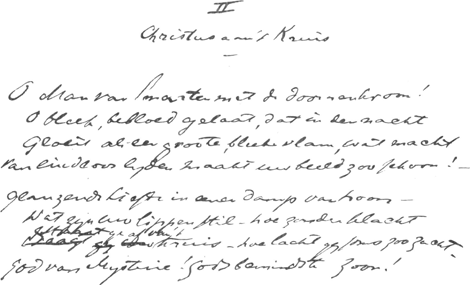 II
Christus aan 't Kruis
O Man van Smarten met de doornenkroon!
O bleek, bebloed gelaat, dat in den nacht
Gloeit als een groote bleeke vlam, wat macht
Van eindeloos lijden maakt uw beeld zoo schoon! —
Glanzende Liefde in eenen damp van hoon —
Wat zijn uw lippen stil — hoe zonder klacht
kruis — hoe lacht gij soms zoo zacht —
God van Mysterie! Gods beminde Zoon!